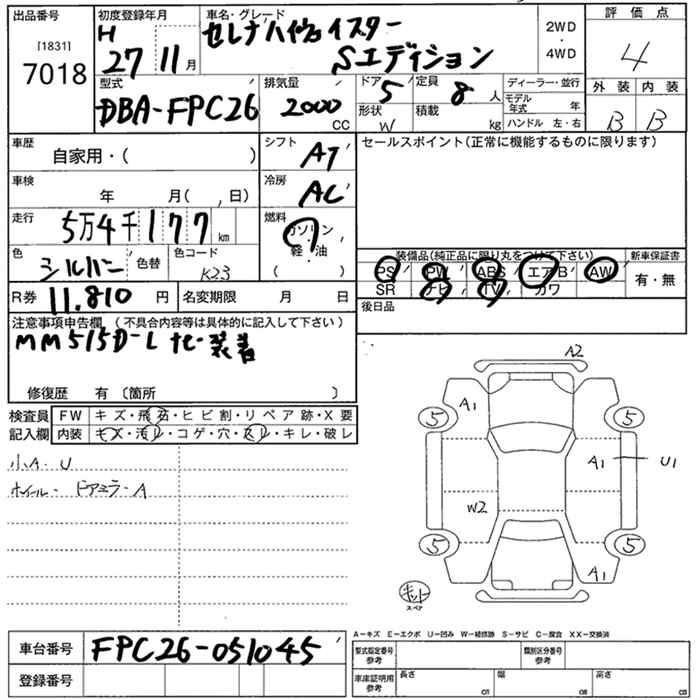 出品番号
[1831]
7018
初度登録年月
H
27 11 月
車名・グレード
セレナハイウェイスター
Sエディション
2WD
・
4WD
評価点
4
外装 内装
B B
型式
DBA-FPC26
排気量
2000
CC
ドア
5
形状
W
定員
8 人
積載
kg
ディーラー・並行
モデル年式 年
ハンドル 左・右
車歴
自家用・( )
シフト
AT
セールスポイント(正常に機能するものに限ります)
車検
年 月( , 日)
冷房
AC
走行
5万4千177 km
燃料
ガソリン
軽・油
( )
色
シルバー
色替
色コード
K23
装備品(純正品に限り丸をつけて下さい)
新車保証書
PS PW ABS エアB AW
有・無
SR ナビ TV カワ
R券 11.810 円
名変期限 月 日
後日品
注意事項申告欄 (不具合内容等は具体的に記入して下さい)
MM515D-L ナビ装着
修復歴 有 〔箇所 〕
検査員
記入欄
FW キズ・飛石・ヒビ割・リペア跡・X要
内装 キズ・汚レ・コゲ・穴・スレ・キレ・破レ
小A・U
ホイール・ドアミラーA
A2
A1
5 5
A1 U1
W2
5 5
A1
キット
スペア
A-キズ E-エクボ U-凹み W-補修跡 S-サビ C-腐食 XX-交換済
車台番号
FPC26-051045
登録番号
型式指定番号
参考
類別区分番号
参考
車庫証明用
参考
長さ cm
幅 cm
高さ cm